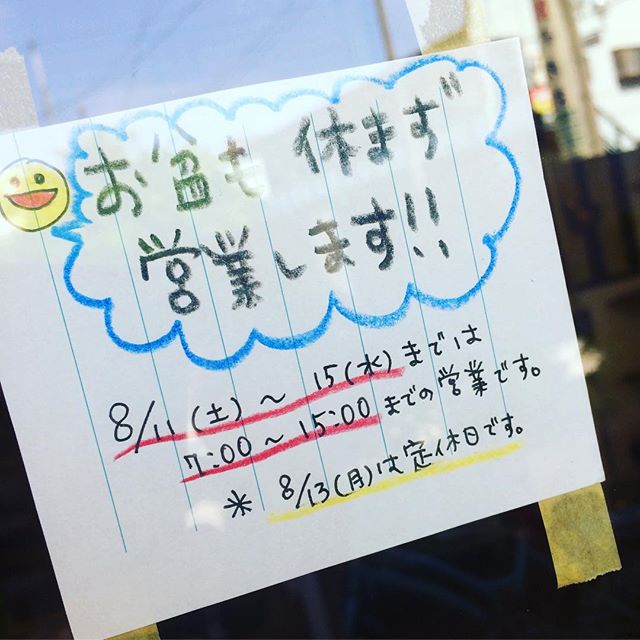 お盆も 休まず
営業します!!
8/11(土)～15(水)までは
7:00～15:00までの営業です。
* 8/13(月)は定休日です。